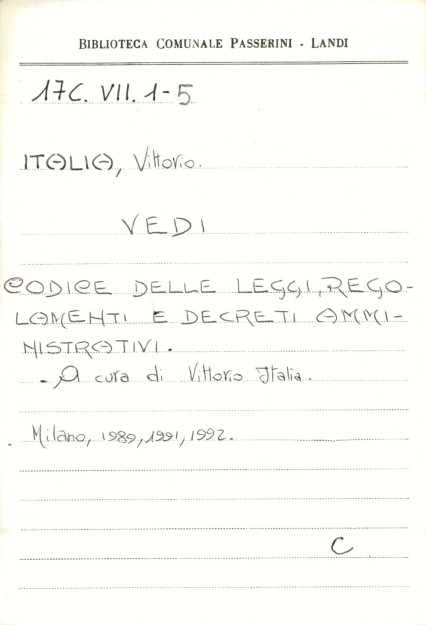 BIBLIOTECA COMUNALE PASSERINI - LANDI
17C. VII. 1-5
ITALIA, Vittorio.
VEDI
CODICE DELLE LEGGI, REGO-
LAMENTI E DECRETI AMMI-
NISTRATIVI.
- A cura di Vittorio Italia.
Milano, 1989, 1991, 1992.
C